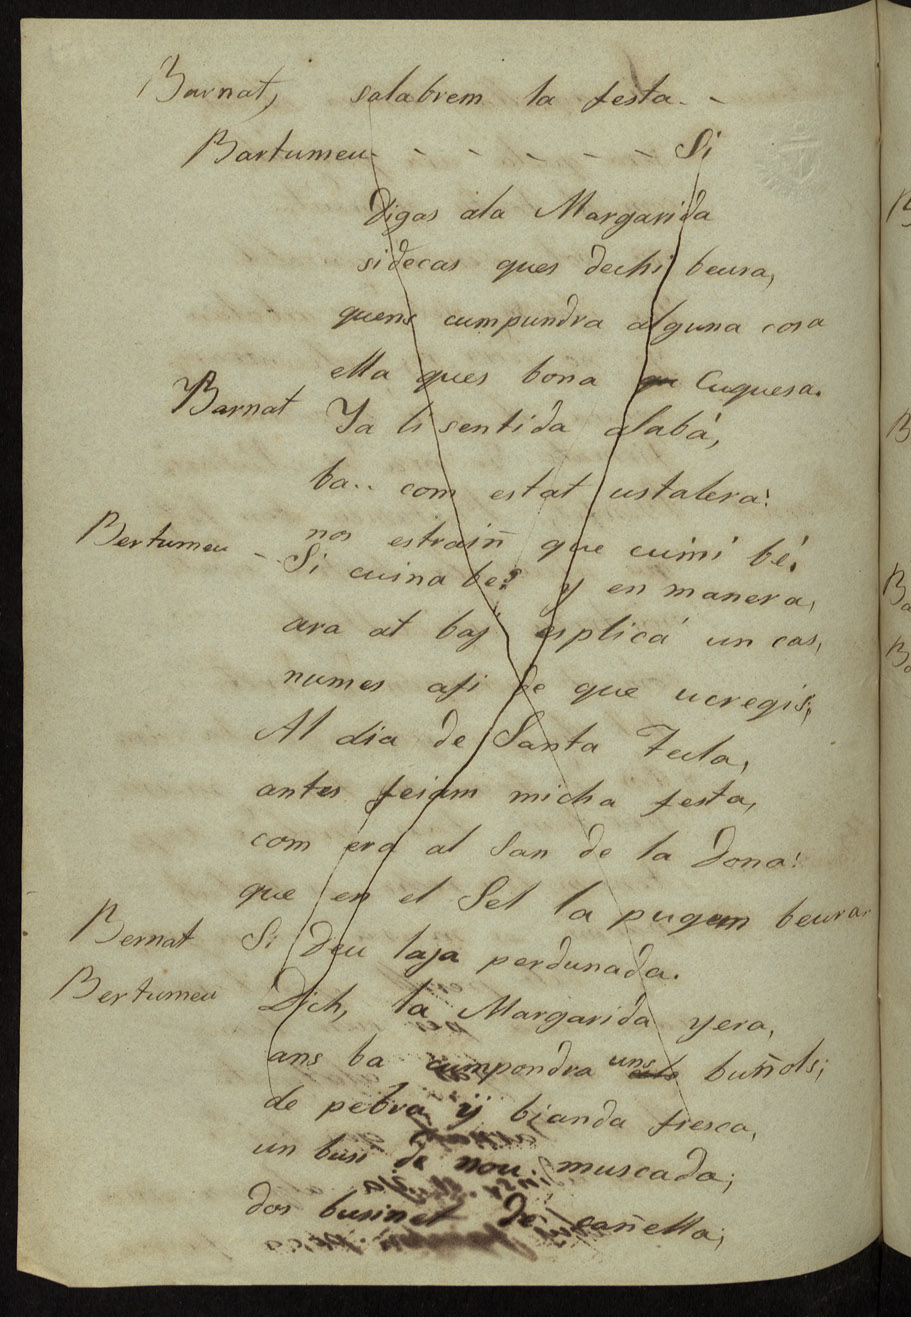 Barnat, salabrem la festa. -
Bartumeu - - - - - - Si
Digas ala Margarida
sidecas ques dechi beura,
quens cumpundra alguna cosa
ella ques bona Cuquesa.
Barnat Ya li sentida alabá,
ba.. com estat ustalera!
nos estrain̄ que cuini bé.
Bertumeu - Si cuina be? y en manera,
ara at baj esplicá un cas,
numes afi de que ucregis;
Al dia de Santa Tecla,
antes feiam micha festa,
com era al San de la Dona!
que en el Sel la pugem beurar
Bernat Si Deu laja perdunada.
Bertumeu Dich, la Margarida yera,
ans ba cumpondra uns buñols;
de pebra ÿ bianda fresca,
un busi de nou muscada;
dos businet de cañella;